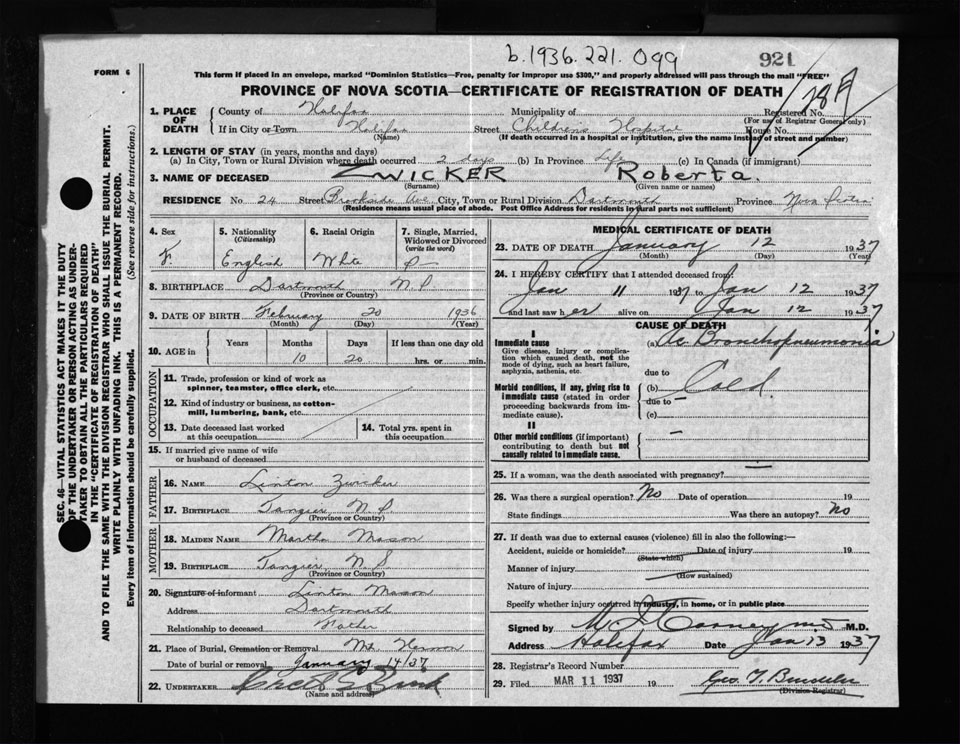 b. 1936. 221. 099
921
FORM 6
This form if placed in an envelope, marked "Dominion Statistics—Free, penalty for improper use $300," and properly addressed will pass through the mail "FREE"
PROVINCE OF NOVA SCOTIA—CERTIFICATE OF REGISTRATION OF DEATH
SEC. 46—VITAL STATISTICS ACT MAKES IT THE DUTY
OF THE UNDERTAKER OR PERSON ACTING AS UNDER-
TAKER TO OBTAIN ALL THE PARTICULARS REQUIRED
IN THE "CERTIFICATE OF REGISTRATION OF DEATH"
AND TO FILE THE SAME WITH THE DIVISION REGISTRAR WHO SHALL ISSUE THE BURIAL PERMIT.
WRITE PLAINLY WITH UNFADING INK. THIS IS A PERMANENT RECORD.
Every item of information should be carefully supplied.
(See reverse side for instructions.)
1. PLACE OF DEATH
County of Halifax Municipality of Registered No.
(For use of Registrar General only)
If in City or Town Halifax Street Children's Hospital House No.
(Name) (If death occurred in a hospital or institution, give the name instead of street and number)
2. LENGTH OF STAY (in years, months and days)
(a) In City, Town or Rural Division where death occurred 2 days (b) In Province Life (c) In Canada (if immigrant)
3. NAME OF DECEASED ZWICKER Roberta.
(Surname) (Given name or names)
RESIDENCE No 24 Street Brookside Ave City, Town or Rural Division Dartmouth Province Nova Scotia
(Residence means usual place of abode. Post Office Address for residents in rural parts not sufficient)
4. Sex
F.
5. Nationality
(Citizenship)
English
6. Racial Origin
White
7. Single, Married,
Widowed or Divorced
(write the word)
8. BIRTHPLACE Dartmouth N.S.
(Province or Country)
9. DATE OF BIRTH February 20 1936
(Month) (Day) (Year)
10. AGE in
Years Months Days If less than one day old
10 20 hrs. or min.
OCCUPATION
11. Trade, profession or kind of work as
spinner, teamster, office clerk, etc.
12. Kind of industry or business, as cotton-
mill, lumbering, bank, etc.
13. Date deceased last worked
at this occupation
14. Total yrs. spent in
this occupation
15. If married give name of wife
or husband of deceased
FATHER
16. NAME Linton Zwicker
17. BIRTHPLACE Tangier N.S.
(Province or Country)
MOTHER
18. MAIDEN NAME Martha Mason
19. BIRTHPLACE Tangier N S
(Province or Country)
20. Signature of informant Linton Mason
Address Dartmouth
Relationship to deceased
21. Place of Burial, Cremation or Removal Mt. Hermon
Date of burial or removal January 14/37
22. UNDERTAKER
(Name and address)
MEDICAL CERTIFICATE OF DEATH
23. DATE OF DEATH January 12 1937
(Month) (Day) (Year)
24. I HEREBY CERTIFY that I attended deceased from:
Jan 11 1937 to Jan 12 1937
and last saw her alive on Jan 12 1937
CAUSE OF DEATH
I
Immediate cause
Give disease, injury or complica-
tion which caused death, not the
mode of dying, such as heart failure,
asphyxia, asthenia, etc.
(a) Ac. Bronchopneumonia
due to
Morbid conditions, if any, giving rise to
immediate cause (stated in order
proceeding backwards from im-
mediate cause).
(b) Cold
due to
(c)
II
Other morbid conditions (if important)
contributing to death but not
causally related to immediate cause.
25. If a woman, was the death associated with pregnancy?
26. Was there a surgical operation? No Date of operation 19
State findings Was there an autopsy? No
27. If death was due to external causes (violence) fill in also the following:—
Accident, suicide or homicide? Date of injury 19
(State which)
Manner of injury
(How sustained)
Nature of injury
Specify whether injury occurred in industry, in home, or in public place
Signed by M.D.
Address Halifax Date Jan 13 1937
28. Registrar's Record Number
29. Filed MAR 11 1937 19
(Division Registrar)